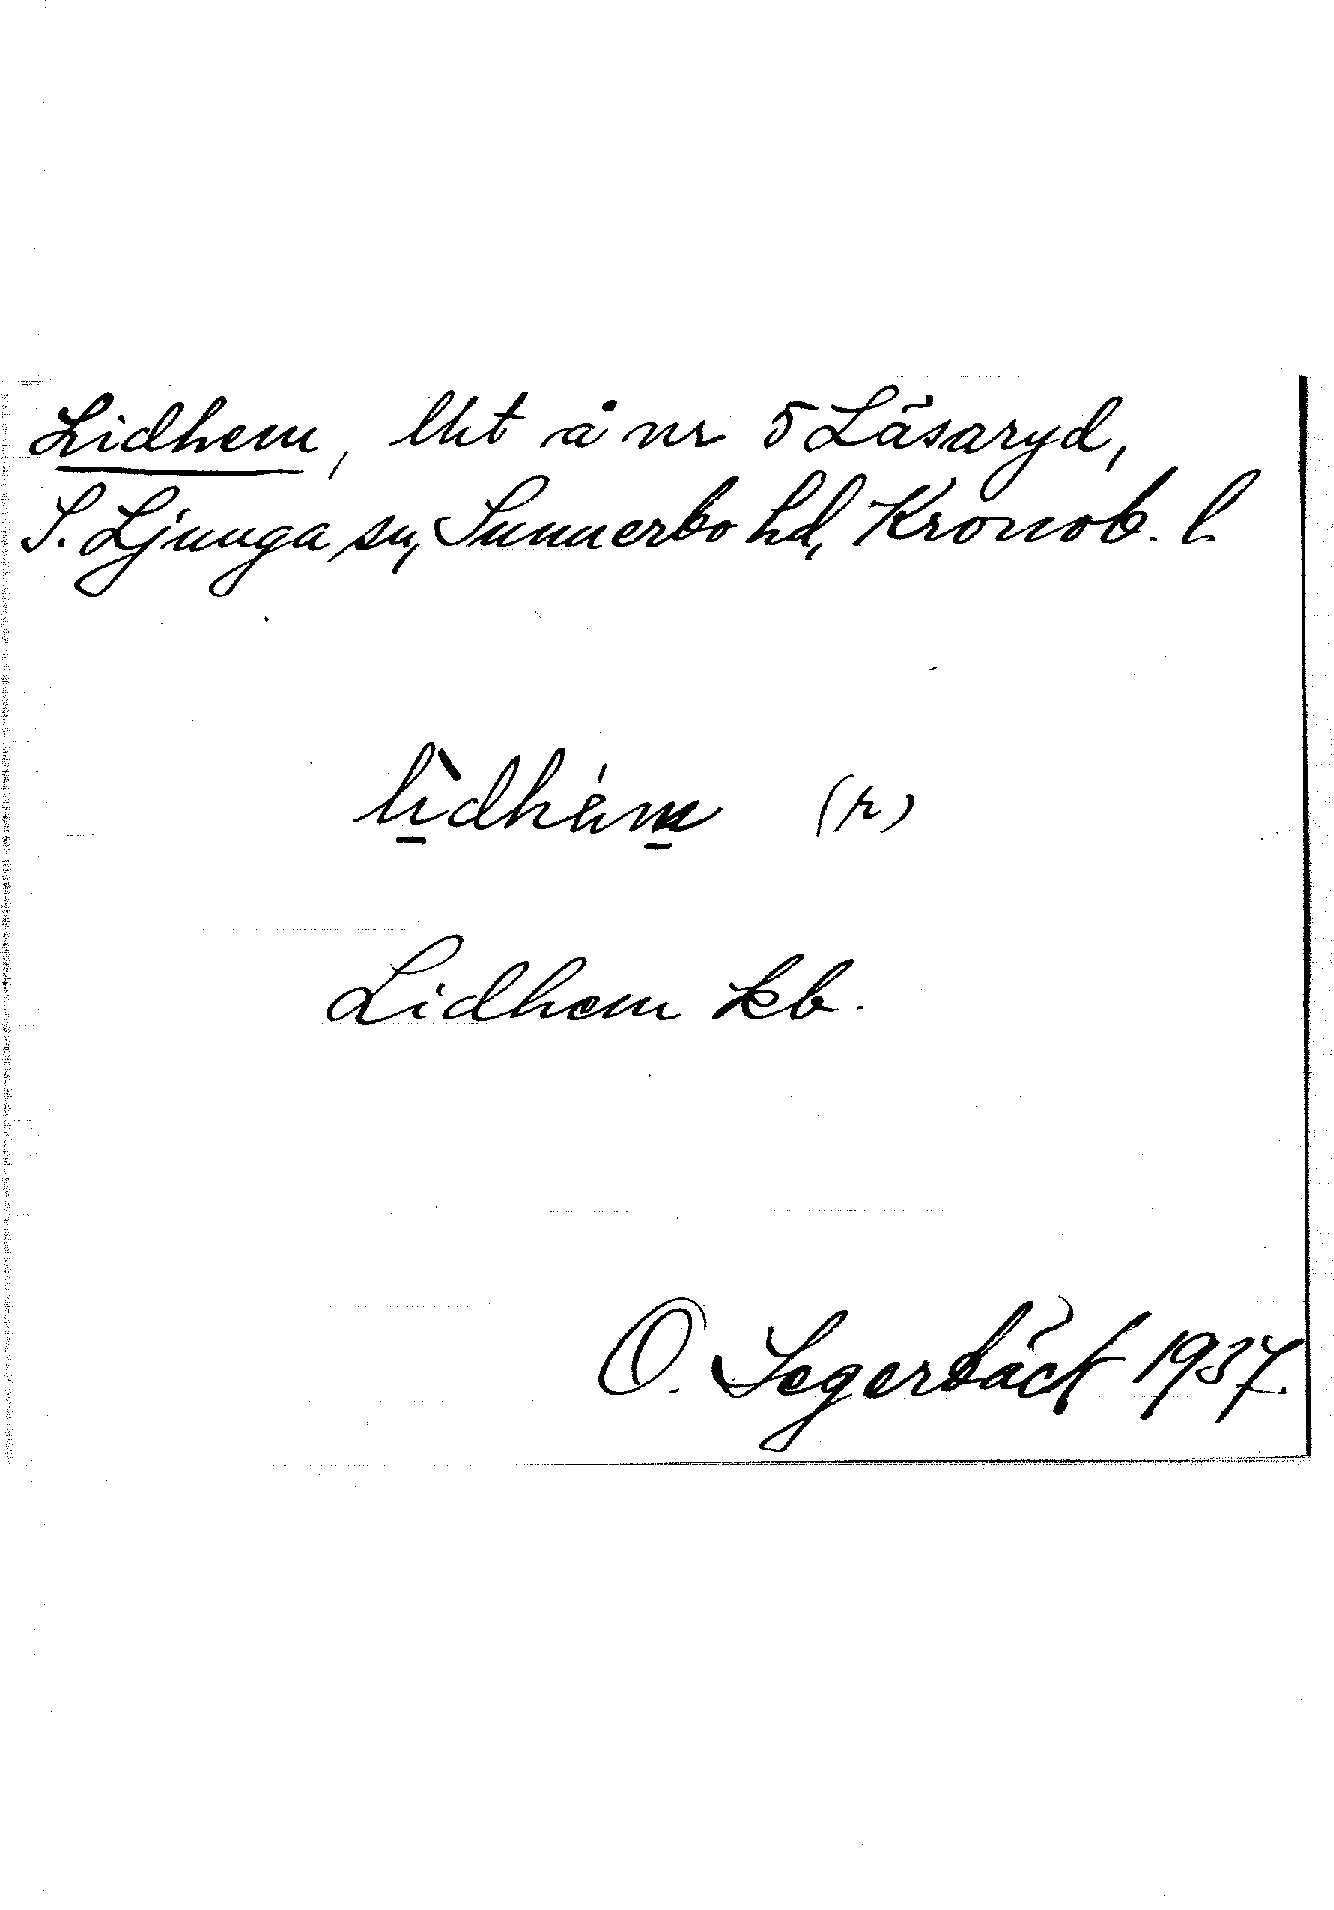 Lidhem, lht å nr 5 Läsaryd,
S. Ljunga sn, Sunnerbo hd, Kronob. l.
lìdhém (r)
Lidhem kb.
O. Segerbäck 1937.